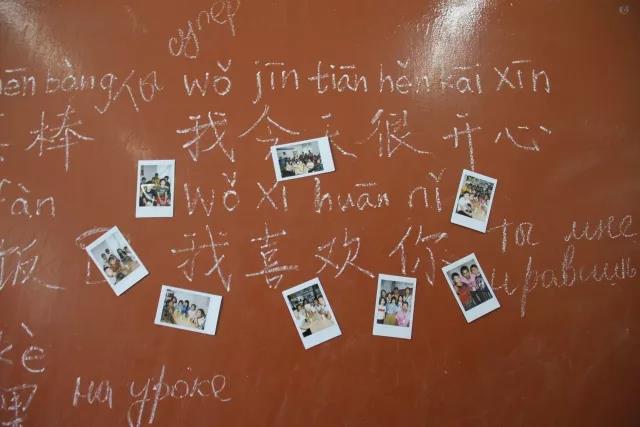 супер
hěn bàng ты wǒ jīn tiān hěn kāi xīn
棒 我今天很开心
fàn wǒ xǐ huān nǐ
饭 我喜欢你 ты мне нравишь
kè
课 на уроке